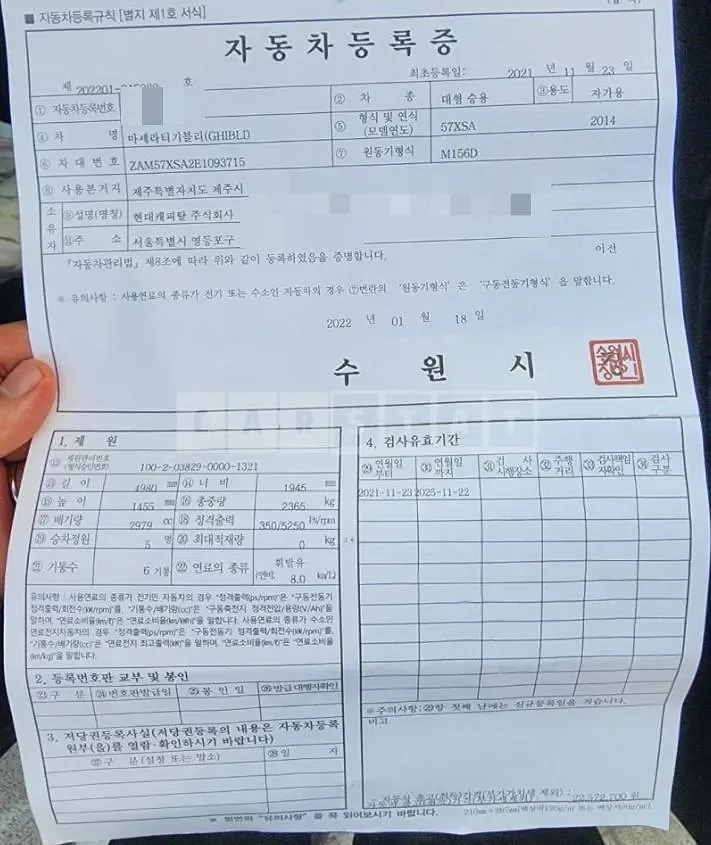 ■ 자동차등록규칙 [별지 제1호 서식]
자동차등록증
제 202201- 호 최초등록일: 2021 년 11 월 23 일
① 자동차등록번호 ② 차 종 대형 승용 ③용도 자가용
④ 차 명 마세라티기블리(GHIBLI) ⑤ 형식 및 연식 (모델연도) 57XSA 2014
⑥ 차대번호 ZAM57XSA2E1093715 ⑦ 원동기형식 M156D
⑧ 사용본거지 제주특별자치도 제주시
소유자 ⑨성명(명칭) 현대캐피탈 주식회사
⑪주 소 서울특별시 영등포구
「자동차관리법」 제8조에 따라 위와 같이 등록하였음을 증명합니다. 이전
※ 유의사항 : 사용연료의 종류가 전기 또는 수소인 자동차의 경우 ⑦번란의 '원동기형식'은 '구동전동기형식'을 말합니다.
2022 년 01 월 18 일
수 원 시
수원시
장인
CARSTAT
1. 제 원
⑫ 제원관리번호 (형식승인번호) 100-2-03829-0000-1321
⑬ 길이 4980 mm ⑭ 너비 1945 mm
⑮ 높이 1455 mm ⑯ 총중량 2365 kg
⑰ 배기량 2979 cc ⑱ 정격출력 350/5250 Ps/rpm
⑲ 승차정원 5 명 ⑳ 최대적재량 0 kg
㉑ 기통수 6 기통 ㉒ 연료의 종류 휘발유 (연비: 8.0 km/L)
유의사항 : 사용연료의 종류가 전기인 자동차의 경우 "정격출력(ps/rpm)"은 "구동전동기
정격출력/회전수(kW/rpm)"를, "기통수/배기량(cc)"은 "구동축전지 정격전압/용량(V/Ah)"을
말하며, "연료소비율(km/ℓ)"은 "연료소비율(km/kWh)"을 말합니다. 사용연료의 종류가 수소인
연료전지자동차의 경우 "정격출력(ps/rpm)"은 "구동전동기 정격출력/회전수(kW/rpm)"를,
"기통수/배기량(cc)"은 "연료전지 최고출력(kW)"을 말하며, "연료소비율(km/ℓ)"은 "연료소비율
(km/kg)"을 말합니다.
2. 등록번호판 교부 및 봉인
㉓구 분 ㉔번호판발급일 ㉕봉 인 일 ㉖발급대행자확인
3. 저당권등록사실(저당권등록의 내용은 자동차등록
원부(을)를 열람·확인하시기 바랍니다)
㉗구 분(설정 또는 말소) ㉘일 자
4. 검사유효기간
㉙연월일부터 ㉚연월일까지 ㉛검 사 시행장소 ㉜주행거리 ㉝검사책임자확인 ㉞검사구분
2021-11-23 2025-11-22
※주의사항:㉙항 첫째 난에는 신규등록일을 적습니다.
비고
자동차 출고(취득)가격(부가가치세 제외) : 22,572,700 원
※ 뒷면의 "유의사항"을 꼭 읽어보시기 바랍니다.